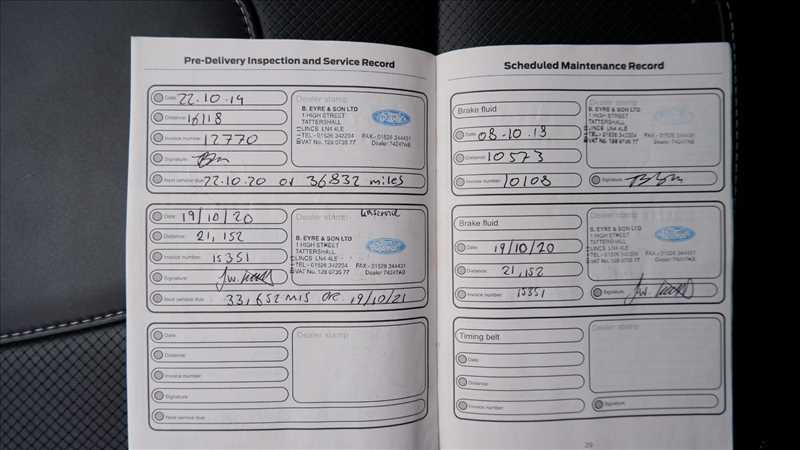 Pre-Delivery Inspection and Service Record
Date: 22.10.19
Distance: 16118
Invoice number: 12770
Signature:
Next service due: 22.10.20 or 36832 miles
Dealer stamp
B. EYRE & SON LTD
1 HIGH STREET
TATTERSHALL
LINCS LN4 4LE
TEL - 01526 342204 FAX - 01526 344431
VAT No. 128 0735 77 Dealer 74247AB
Ford
Date: 19/10/20
Distance: 21,152
Invoice number: 15351
Signature:
Next service due: 33,652 MIS 19/10/21
Dealer stamp
B. EYRE & SON LTD
1 HIGH STREET
TATTERSHALL
LINCS LN4 4LE
TEL - 01526 342204 FAX - 01526 344431
VAT No. 128 0735 77 Dealer 74247AB
Ford
Date:
Distance:
Invoice number:
Signature
Next service due:
Dealer stamp
Scheduled Maintenance Record
Brake fluid
Date: 08.10.19
Distance: 10573
Invoice number: 10108
Dealer stamp
B. EYRE & SON LTD
1 HIGH STREET
TATTERSHALL
LINCS LN4 4LE
TEL - 01526 342204 FAX - 01526 344431
VAT No. 128 0735 77 Dealer 74247AB
Ford
Signature:
Brake fluid
Date: 19/10/20
Distance: 21,152
Invoice number: 15351
Dealer stamp
B. EYRE & SON LTD
1 HIGH STREET
TATTERSHALL
LINCS LN4 4LE
TEL - 01526 342204 FAX - 01526 344431
VAT No. 128 0735 77 Dealer 74247AB
Ford
Signature:
Timing belt
Date:
Distance:
Invoice number:
Dealer stamp
Signature:
29